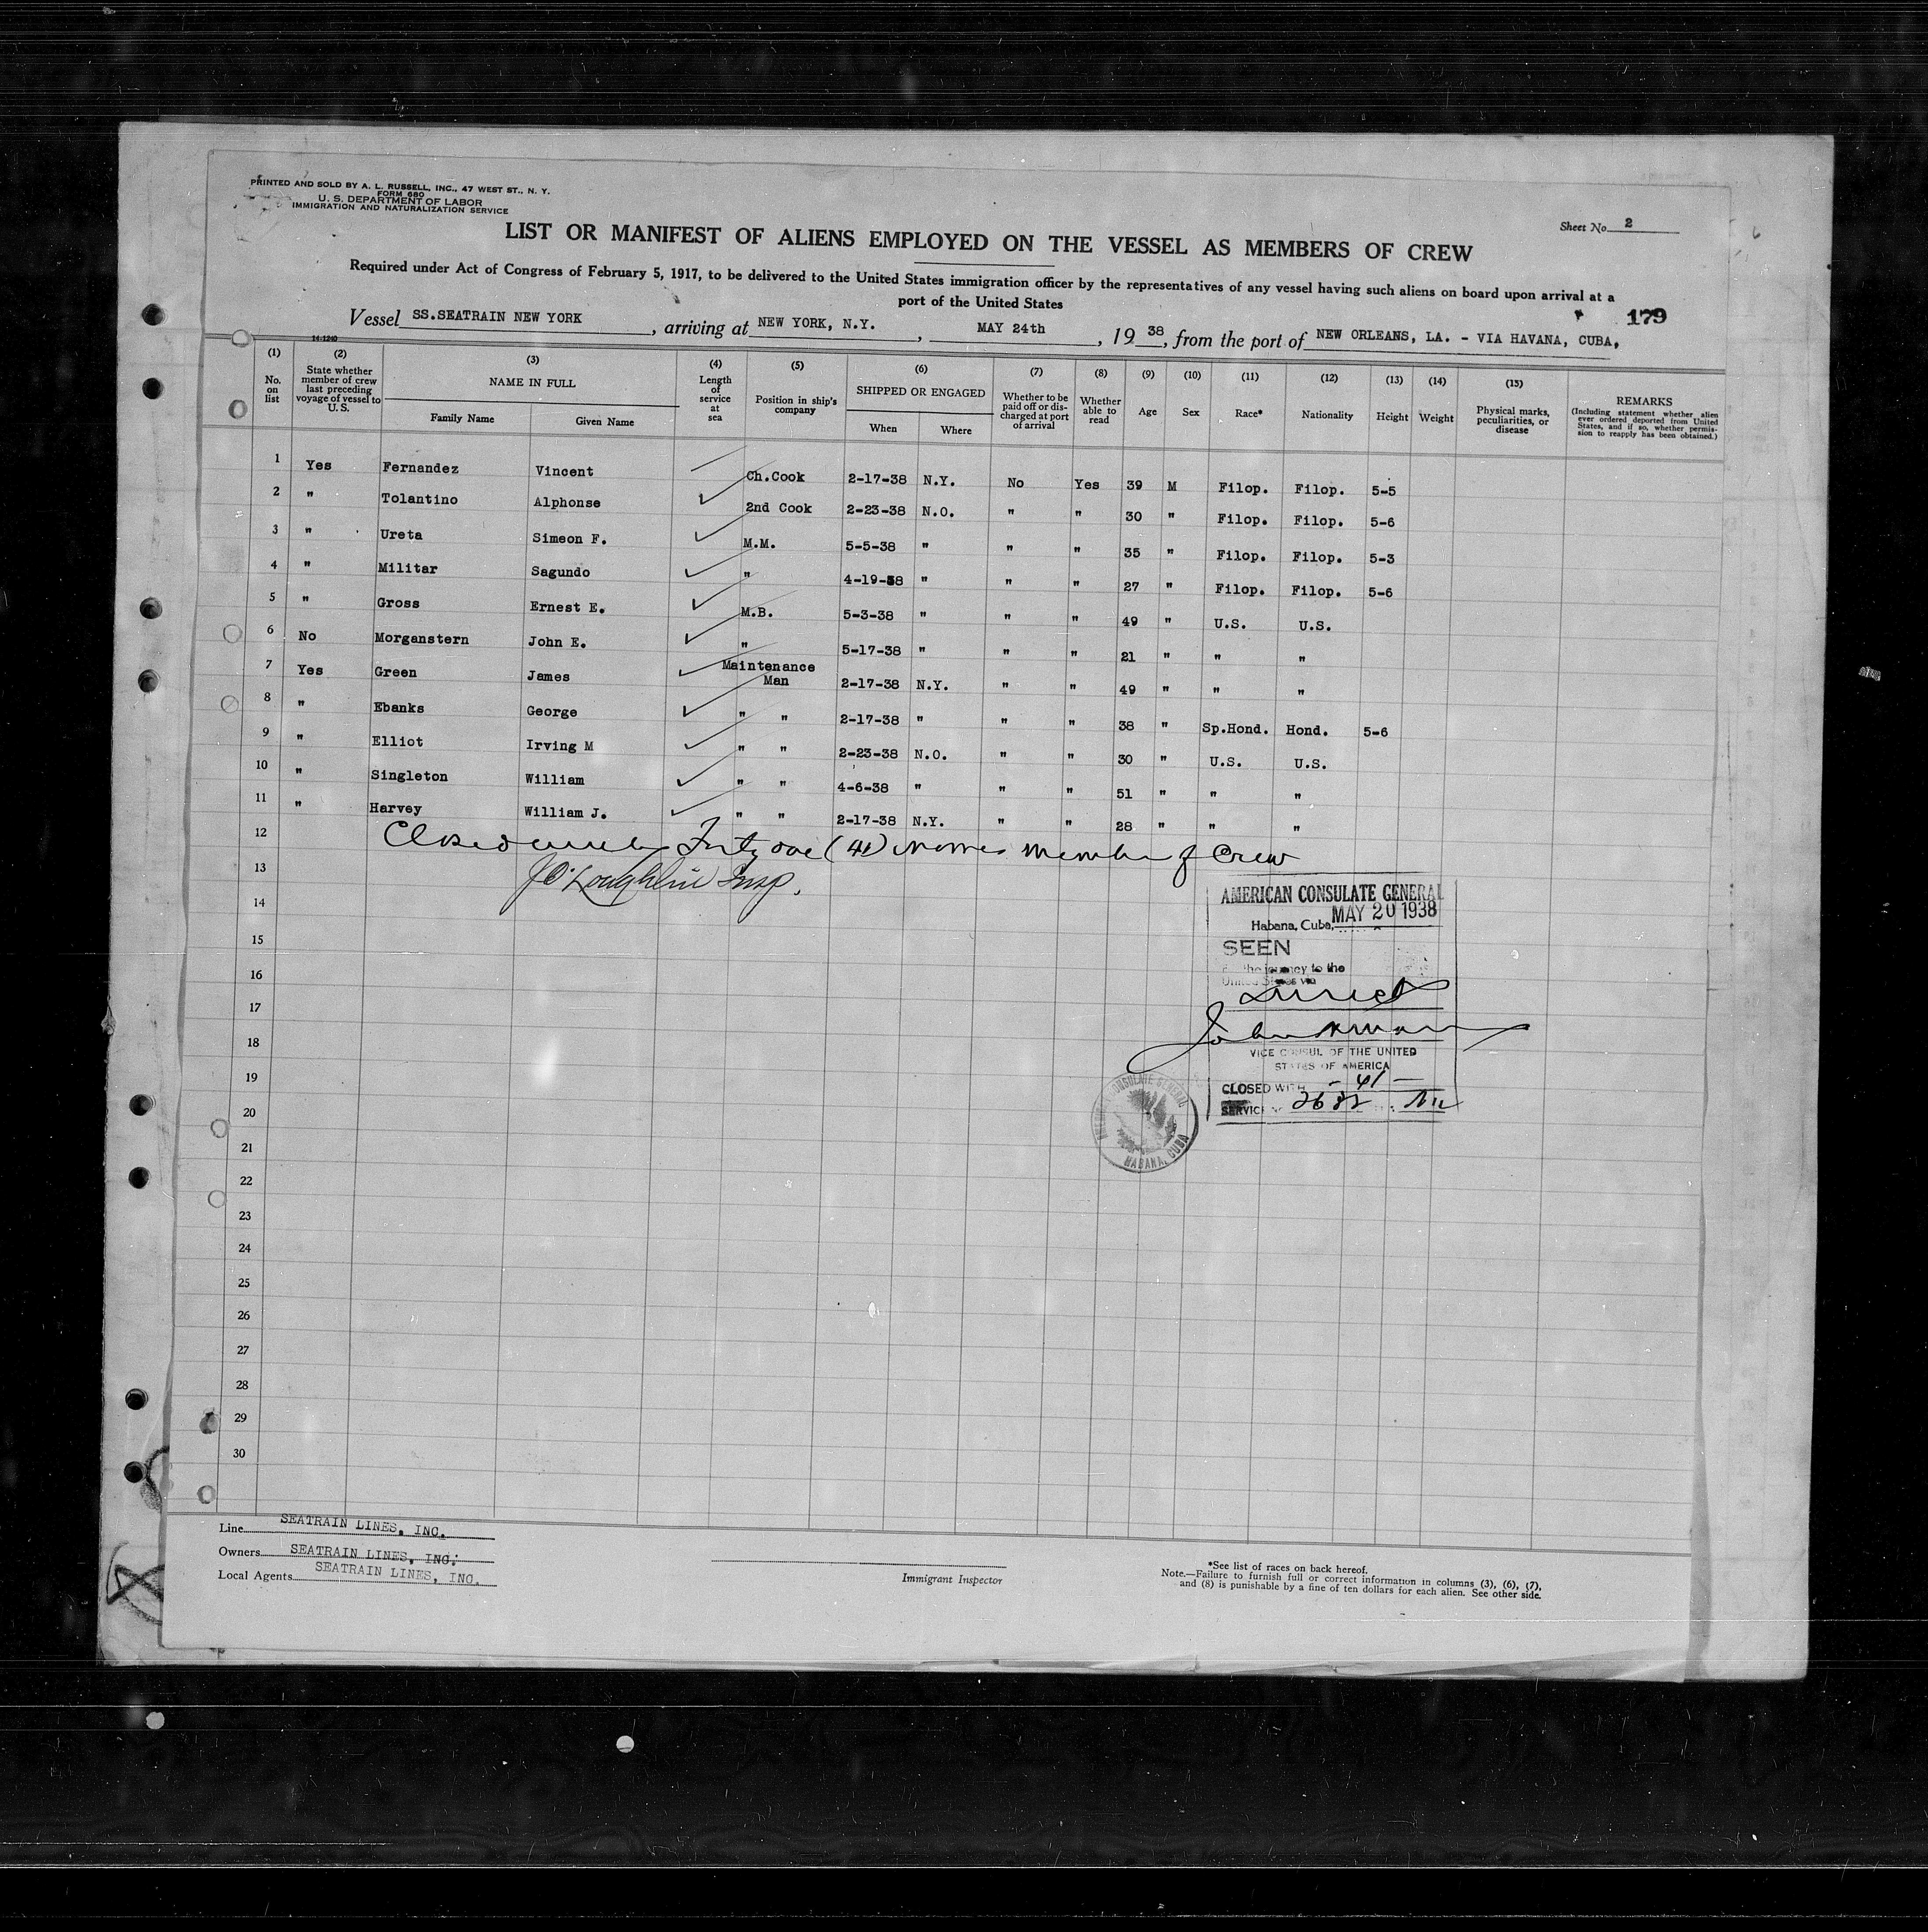 PRINTED AND SOLD BY A. L. RUSSELL, INC., 47 WEST ST., N. Y.
FORM 680
U. S. DEPARTMENT OF LABOR
IMMIGRATION AND NATURALIZATION SERVICE
Sheet No. 2
LIST OR MANIFEST OF ALIENS EMPLOYED ON THE VESSEL AS MEMBERS OF CREW
Required under Act of Congress of February 5, 1917, to be delivered to the United States immigration officer by the representatives of any vessel having such aliens on board upon arrival at a
port of the United States
179
Vessel SS.SEATRAIN NEW YORK, arriving at NEW YORK, N.Y., MAY 24th, 19 38, from the port of NEW ORLEANS, LA. - VIA HAVANA, CUBA,
14-1240
(1) No. on list (2) State whether member of crew last preceding voyage of vessel to U.S. (3) NAME IN FULL Family Name Given Name (4) Length of service at sea (5) Position in ship's company (6) SHIPPED OR ENGAGED When Where (7) Whether to be paid off or discharged at port of arrival (8) Whether able to read (9) Age (10) Sex (11) Race* (12) Nationality (13) Height (14) Weight (15) Physical marks, peculiarities, or disease REMARKS (Including statement whether alien ever ordered deported from United States, and if so, whether permission to reapply has been obtained.)
1 Yes Fernandez Vincent Ch.Cook 2-17-38 N.Y. No Yes 39 M Filop. Filop. 5-5
2 " Tolantino Alphonse 2nd Cook 2-23-38 N.O. " " 30 " Filop. Filop. 5-6
3 " Ureta Simeon F. M.M. 5-5-38 " " " 35 " Filop. Filop. 5-3
4 " Militar Sagundo " 4-19-38 " " " 27 " Filop. Filop. 5-6
5 " Gross Ernest E. M.B. 5-3-38 " " " 49 " U.S. U.S.
6 No Morganstern John E. " 5-17-38 " " " 21 " " "
7 Yes Green James Maintenance Man 2-17-38 N.Y. " " 49 " " "
8 " Ebanks George " " 2-17-38 " " " 38 " Sp.Hond. Hond. 5-6
9 " Elliot Irving M " " 2-23-38 N.O. " " 30 " U.S. U.S.
10 " Singleton William " " 4-6-38 " " " 51 " " "
11 " Harvey William J. " " 2-17-38 N.Y. " " 28 " " "
12 Closed Forty one (41) Members of Crew
13 J O'Loughlin Insp.
14
15
16
17
18
19
20
21
22
23
24
25
26
27
28
29
30
AMERICAN CONSULATE GENERAL
Habana, Cuba, MAY 20 1938
SEEN
the journey to the
United States via
VICE CONSUL OF THE UNITED
STATES OF AMERICA
CLOSED WITH - 41 -
SERVICE
CONSULATE GENERAL
HABANA, CUBA
Line SEATRAIN LINES, INC.
Owners SEATRAIN LINES, INC.
Local Agents SEATRAIN LINES, INC.
Immigrant Inspector
*See list of races on back hereof.
Note.—Failure to furnish full or correct information in columns (3), (6), (7),
and (8) is punishable by a fine of ten dollars for each alien. See other side.